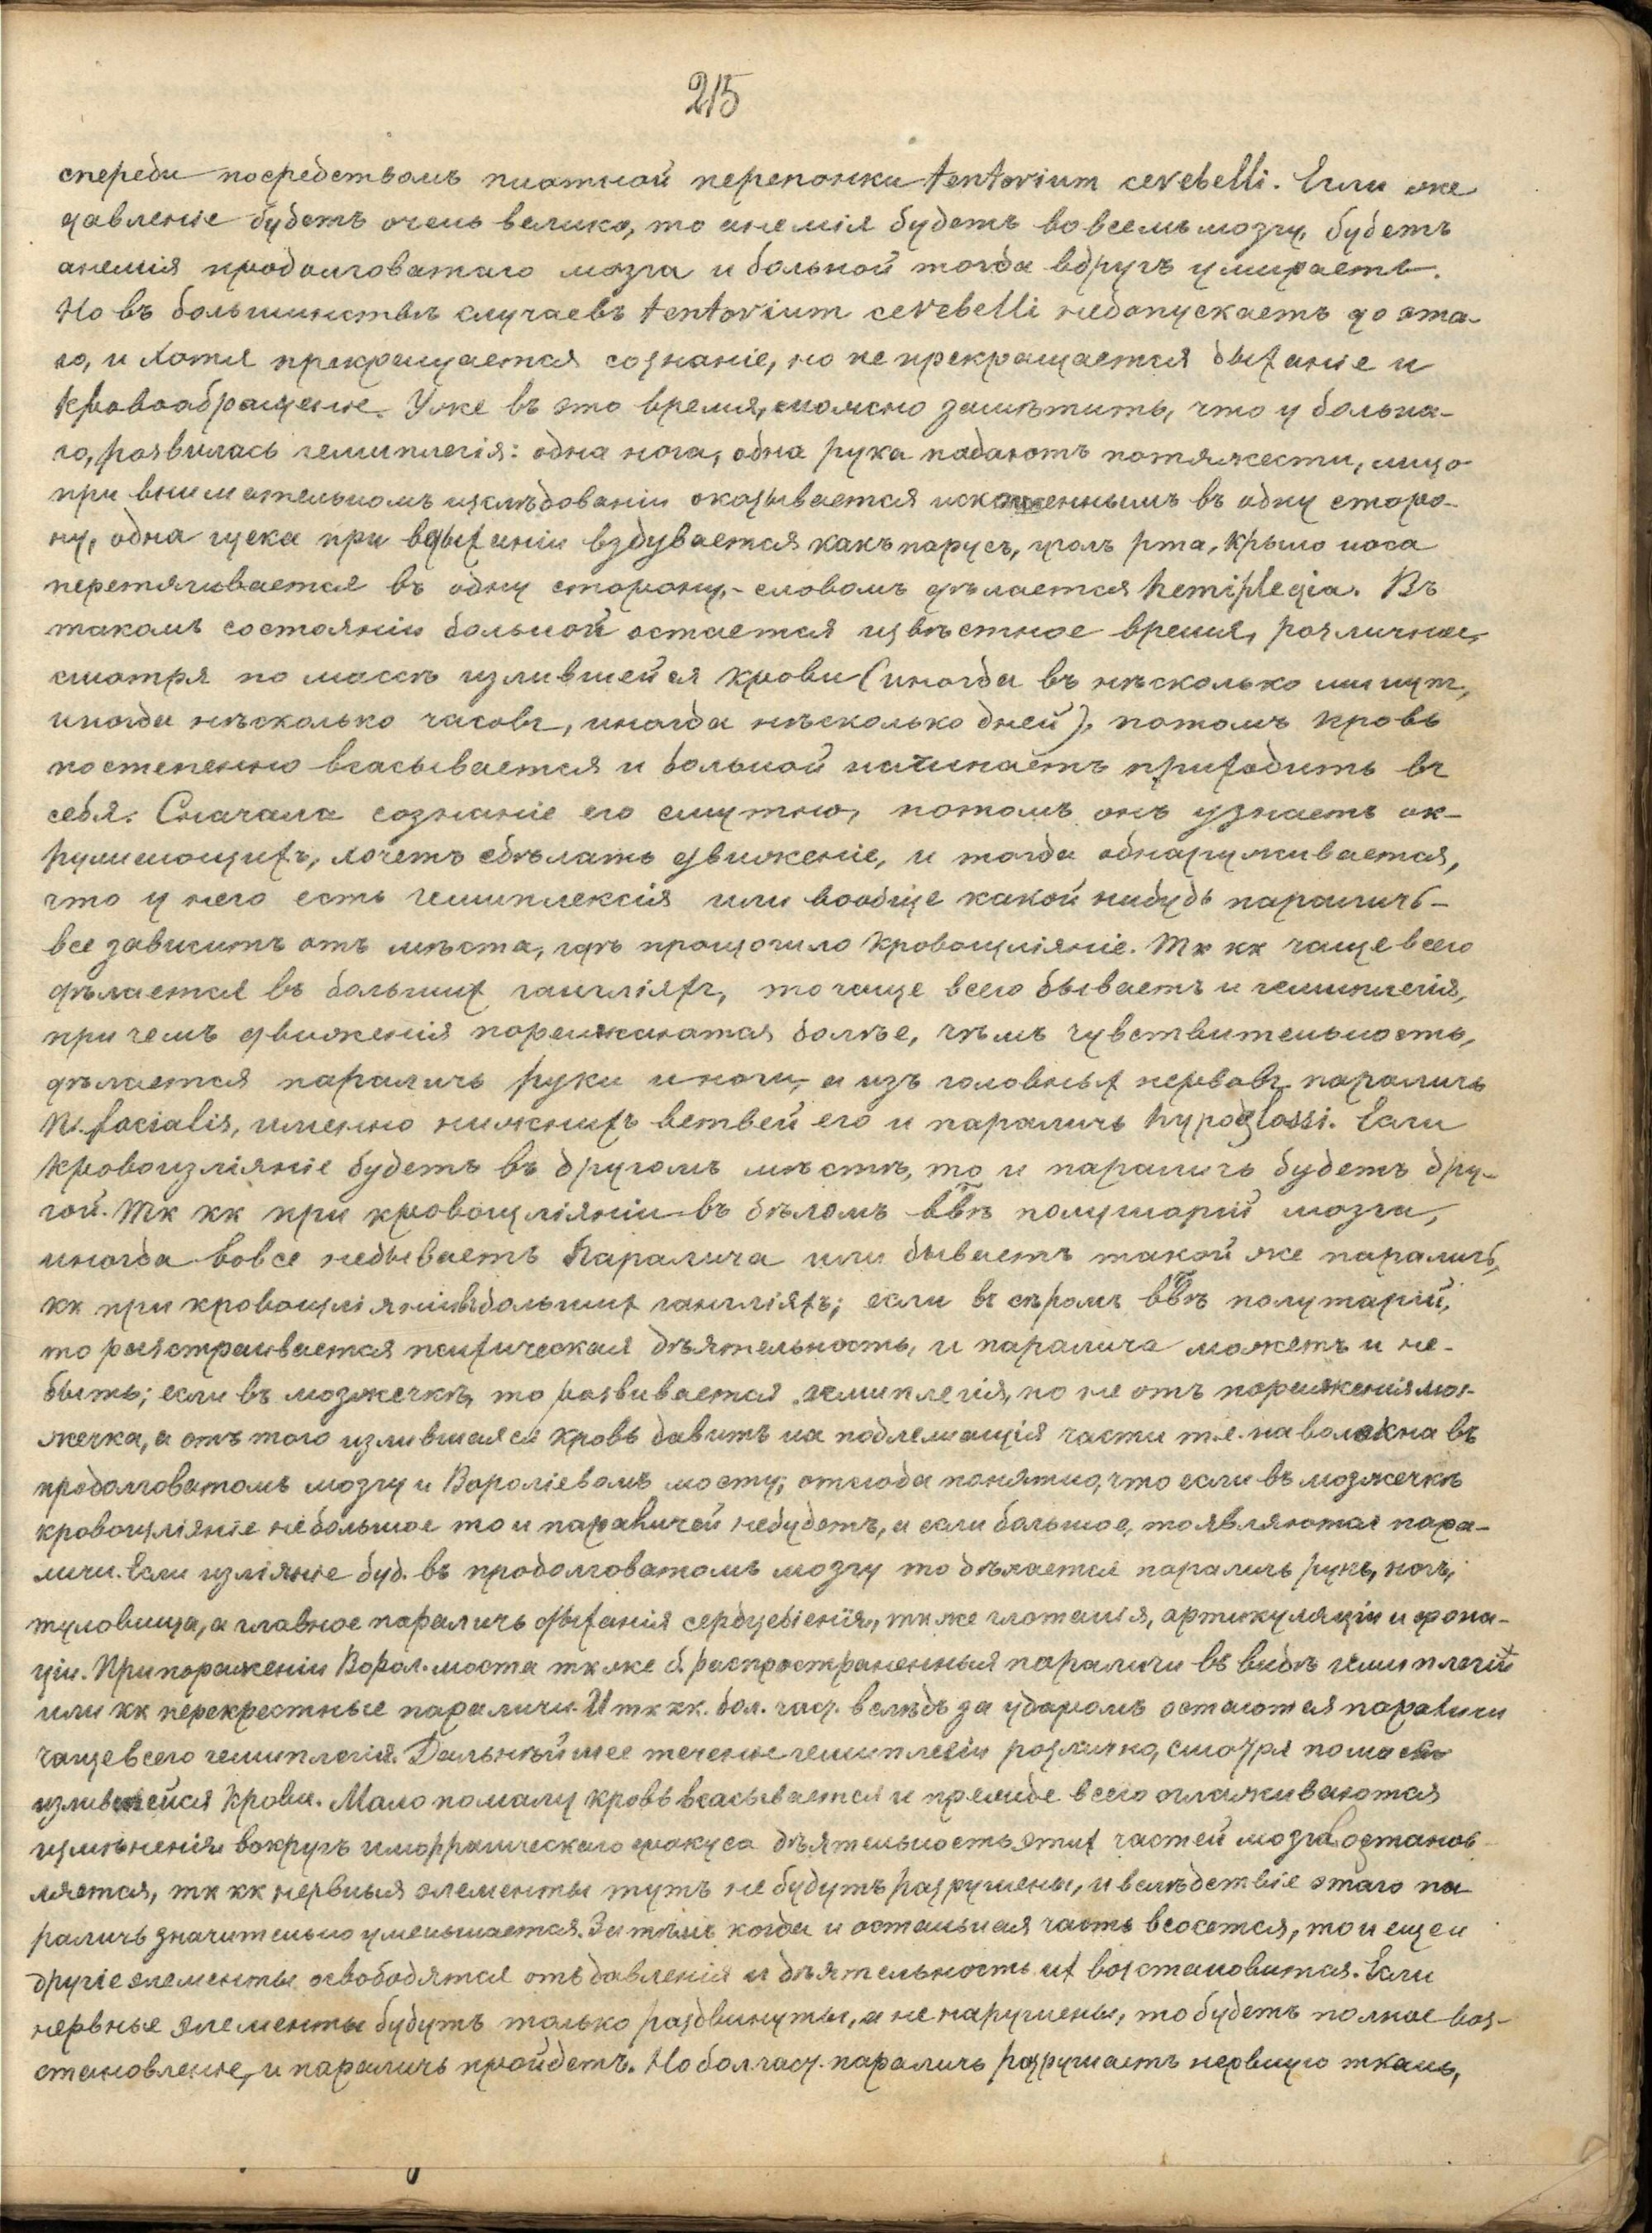 215
спереди посредствомъ плотной перепонки tentorium cerebelli. Если же
давленіе будетъ очень велико, то анемія будетъ во всемъ мозгу, будетъ
анемія продолговатаго мозга и больной тогда вдругъ умираетъ.
Но въ большинствѣ случаевъ tentorium cerebelli недопускаетъ до эта-
го, и хотя прекращается сознаніе, но не прекращается дыханіе и
кровообращеніе. Уже въ это время, можно замѣтить, что у больна-
го, развилась гемиплегія: одна нога, одна рука падаютъ потяжести, лицо
при внимательномъ изслѣдованіи оказывается искаженнымъ въ одну сторо-
ну, одна щека при вдыханіи вздувается какъ парусъ, уголъ рта, крыло носа
перетягивается въ одну сторону,- словомъ дѣлается hemiplegia. Въ
такомъ состояніи больной остается извѣстное время, различное,
смотря по массѣ излившейся крови (иногда въ нѣсколько минут,
иногда нѣсколько часовъ, иногда нѣсколько дней), потомъ кровь
постепенно всасывается и больной начинаетъ приходить въ
себя. Сначала сознаніе его смутно, потомъ онъ узнаетъ ок-
ружающихъ, хочетъ сдѣлать движеніе, и тогда обнаруживается,
что у него есть гемиплексія или вообще какой нибудь параличъ-
все зависитъ отъ мѣста, гдѣ произошло кровоизліяніе. Тк кк чаще всего
дѣлается въ больших гангліяхъ, то чаще всего бываетъ и гемиплегія,
при чемъ движенія поражаются болѣе, чѣмъ чувствительность,
дѣлается параличъ руки и ноги, а изъ головных нервовъ параличъ
N. facialis, именно нижнихъ ветвей его и параличъ hypoglossi. Если
кровоизліяніе будетъ въ другомъ мѣстѣ, то и параличъ будетъ дру-
гой. Тк кк при кровоизліяніи въ бѣломъ ввѣ полушарій мозга,
иногда вовсе небываетъ паралича или бываетъ такой же параличъ,
кк при кровоизліяніи въ больших гангліяхъ; если въ сѣромъ ввѣ полушарій,
то разстраивается психическая дѣятельность, и паралича можетъ и не-
быть; если въ мозжечкѣ, то развивается гемиплегія, но не отъ пораженія моз-
жечка, а отъ того излившаяся кровь давитъ на подлежащія части т.е. на волокна въ
продолговатомъ мозгу и Вароліевомъ мосту; отсюда понятно, что если въ мозжечкѣ
кровоизліяніе небольшое то и параличей небудетъ, а если большое, то являются пара-
личи. Если изліяніе буд. въ продолговатомъ мозгу то дѣлается параличъ рукъ, ногъ,
туловища, а главное параличъ дыханія сердцебіенія, тк же глотанія, артикуляціи и фона-
ціи. При пораженіи Варол. моста тк же б. распространенныя параличи въ видѣ гемиплегій
или кк перекрестные параличи. И тк кк. бол. част. вслѣдъ за ударомъ остаются параличи
чаще всего гемиплегія. Дальнѣйшее теченіе гемиплегіи различно, смотря по массѣ
излившейся крови. Мало помалу кровь всасывается и прежде всего сглаживаются
измѣненія вокругъ гморрагическаго фокуса дѣятельность этих частей мозга востанов-
ляется, тк кк нервныя элементы тутъ не будутъ разрушены, и вслѣдствіе этаго па-
раличъ значительно уменьшается. Затѣмъ когда и остальная часть всосется, то и еще и
другіе элементы освободятся отъ давленія и дѣятельность их возстановится. Если
нервные элементы будутъ только раздвинуты, а не нарушены, то будетъ полное воз-
становленіе, и параличъ пройдетъ. Но бол. част. параличъ разрушаетъ нервную ткань,